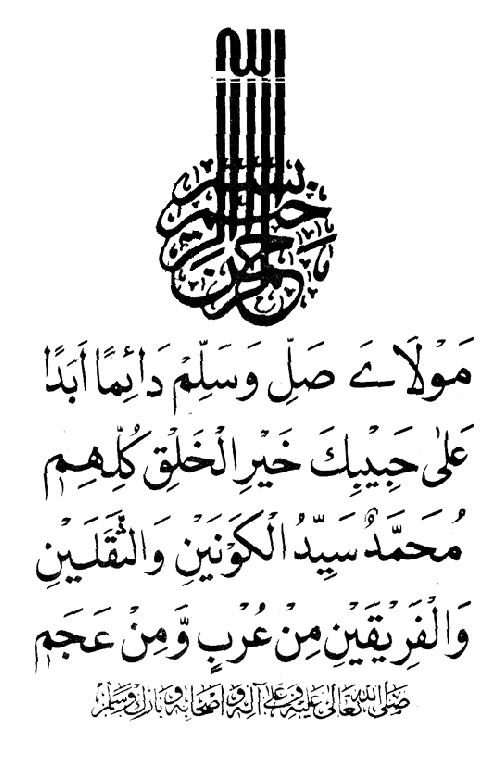 بسم الله الرحمن الرحيم
مَوْلَاىَ صَلِّ وَسَلِّمْ دَائِمًا اَبَدًا
عَلٰى حَبِيْبِكَ خَيْرِ الْخَلْقِ كُلِّهِمِ
مُحَمَّدٌ سَيِّدُ الْكَوْنَيْنِ وَالثَّقَلَيْنِ
وَالْفَرِيْقَيْنِ مِنْ عُرْبٍ وَّمِنْ عَجَمِ
صَلَّى اللهُ تَعَالٰى عَلَيْهِ وَعَلٰى آلِهٖ وَاَصْحَابِهٖ وَبَارَكَ وَسَلَّمْ